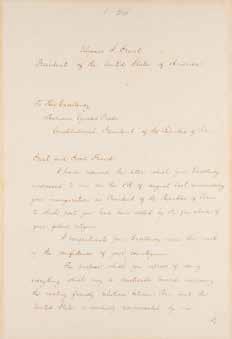 Ulysses S. Grant
President of the United States of America
To His Excellency
Constitutional President of the Republic of Peru
Great and Good Friend
I have received the letter which your Excellency
addressed to me on the of August last announcing
your inauguration as President of the Republic of Peru
to which post you have been called by the
of your fellow citizens
I congratulate your Excellency upon this mark
of the confidence of your countrymen.
The purpose which you express of doing
everything which may towards increasing
the existing friendly relations between Peru and the
United States is cordially reciprocated by me